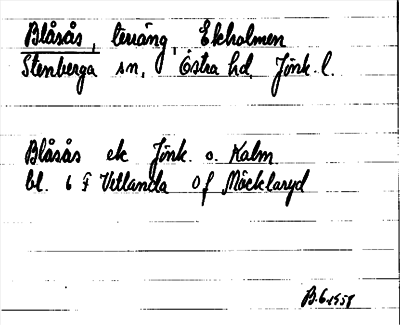 Blåsås, terräng, Ekholmen
Stenberga sn, Östra hd Jönk. l.
Blåsås ek Jönk. o. Kalm
bl. 6 F Vetlanda Of Möcklaryd
B.G 1958